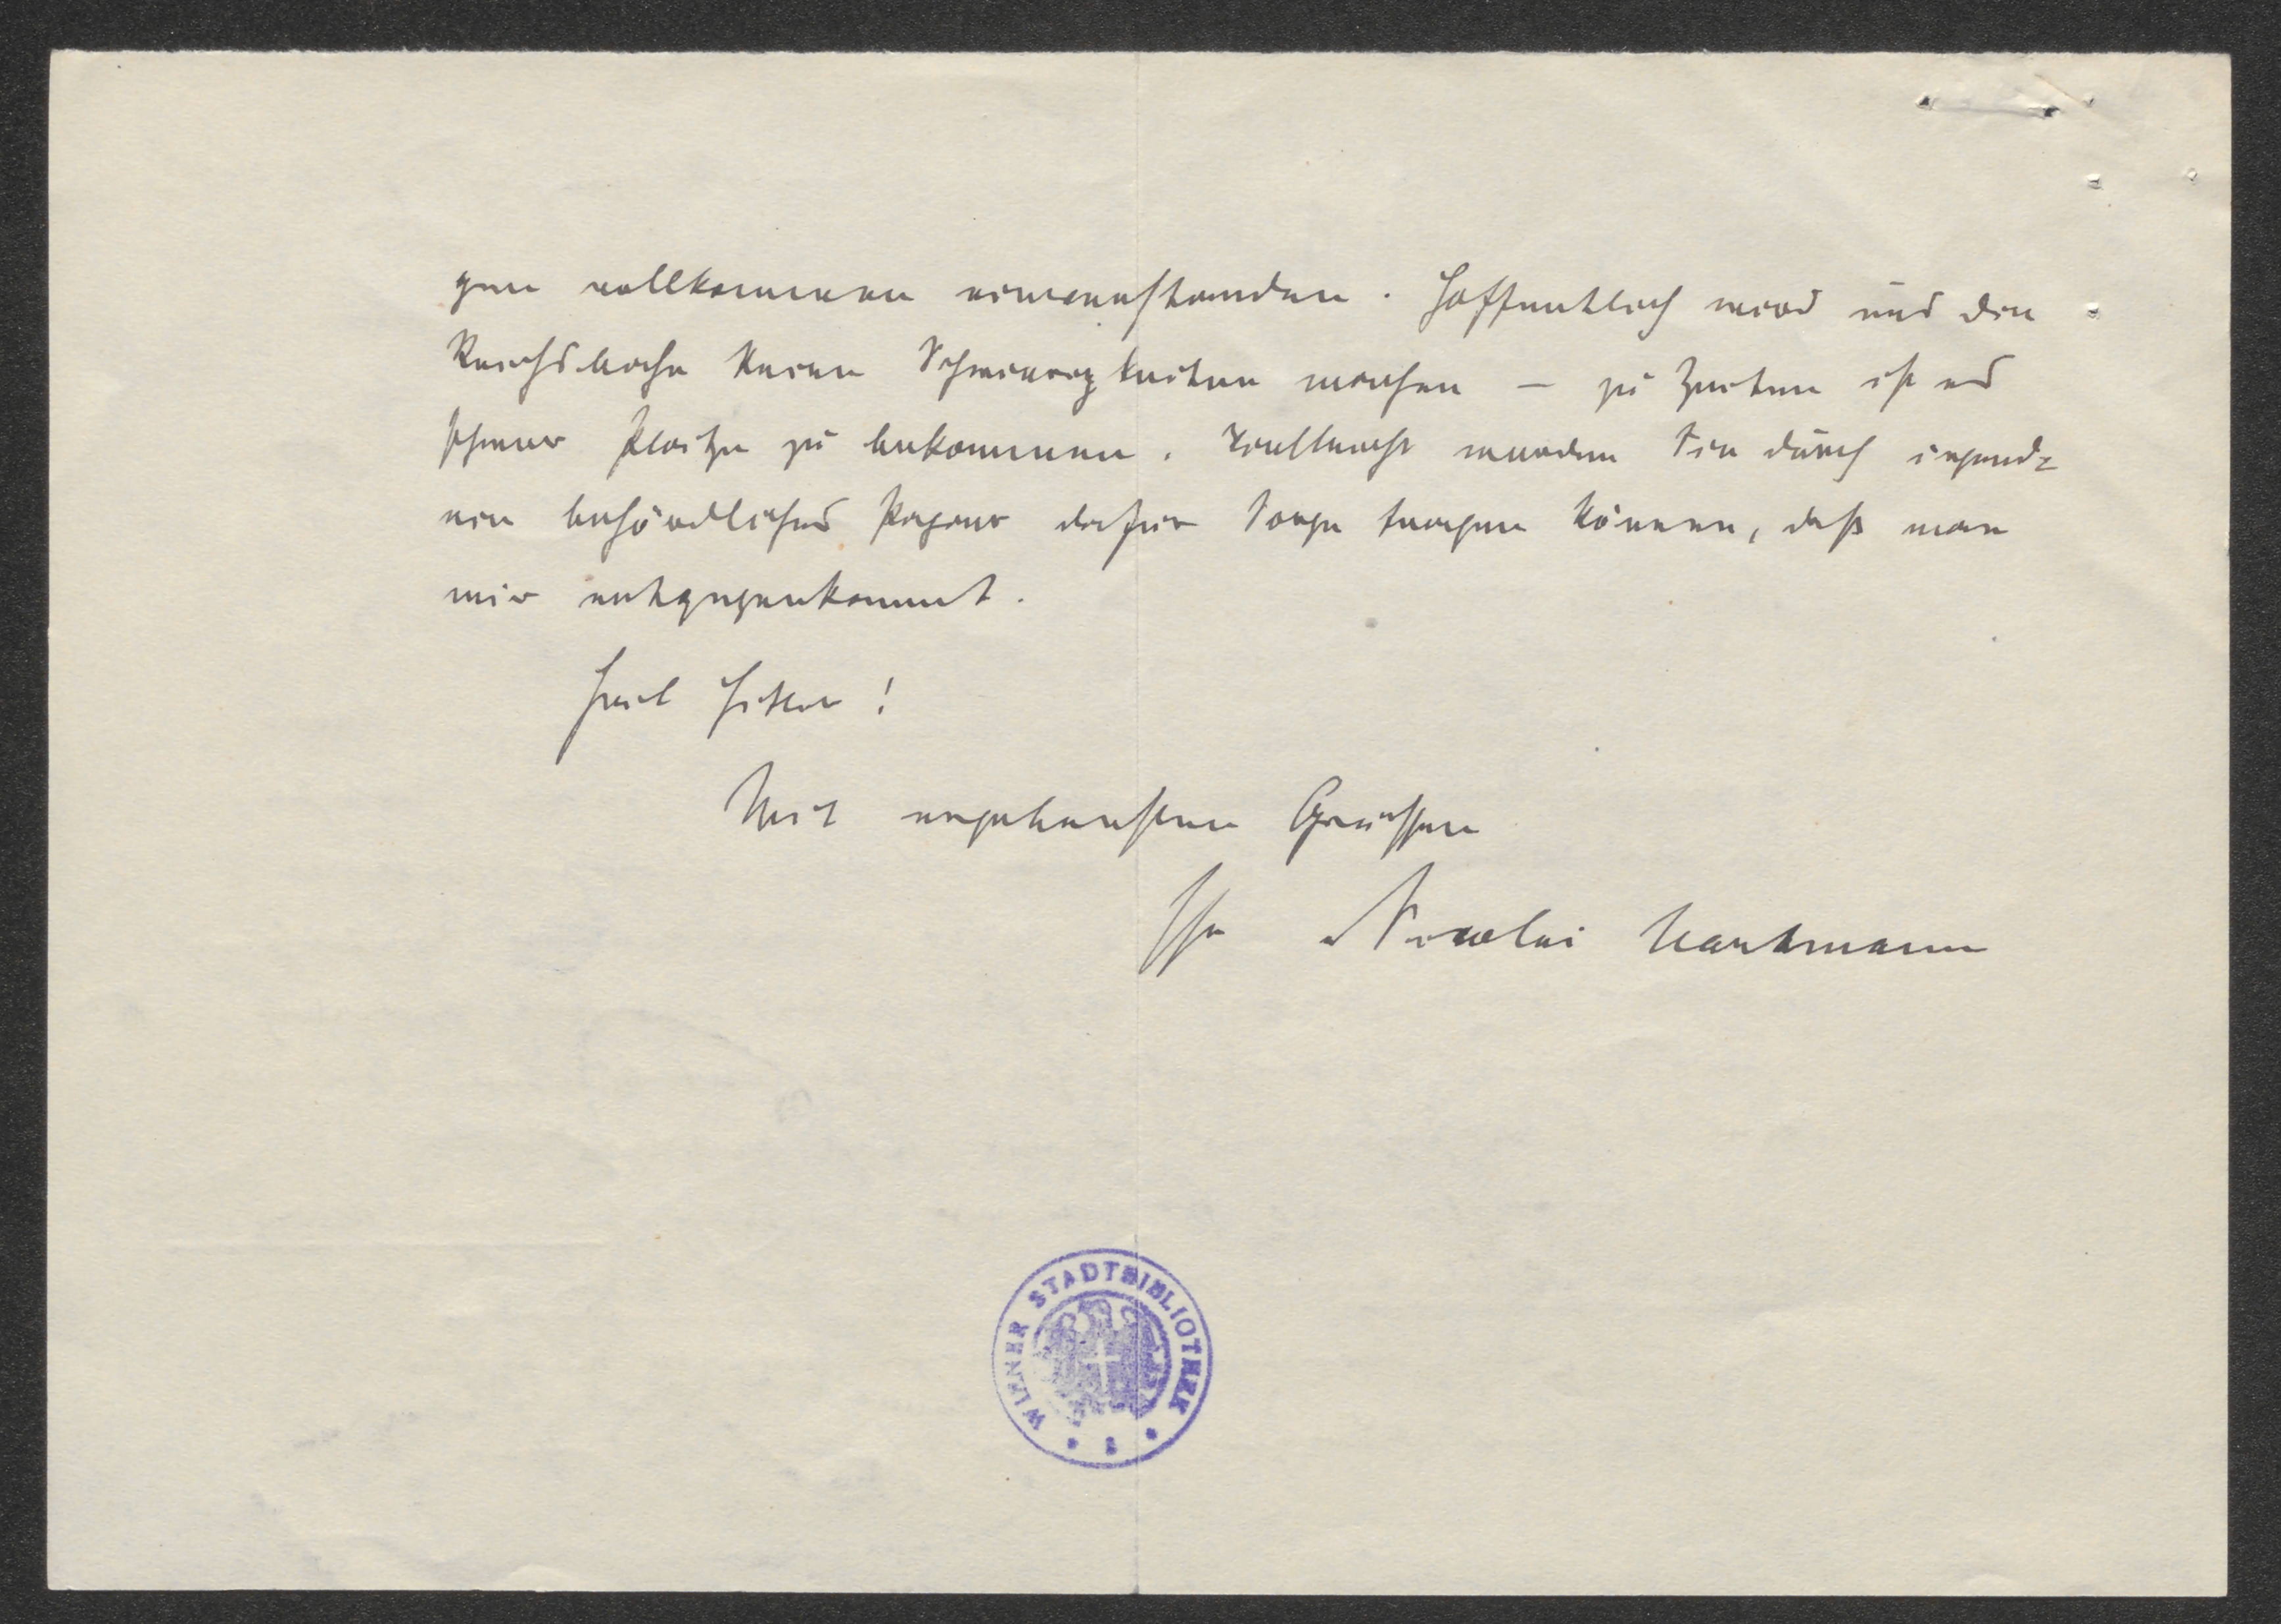 gen vollkommen einverstanden. Hoffentlich wird uns die
Reichsbahn keine Schwierigkeiten machen – zu Zeiten ist es
schwer Plätze zu bekommen. Vielleicht werden Sie durch irgend=
ein behördliches Papier dafür Sorge tragen können, daß man
mir entgegenkommt.
Heil Hitler!
Mit ergebensten Grüssen
Ihr Nicolai Hartmann
WIENER STADTBIBLIOTHEK